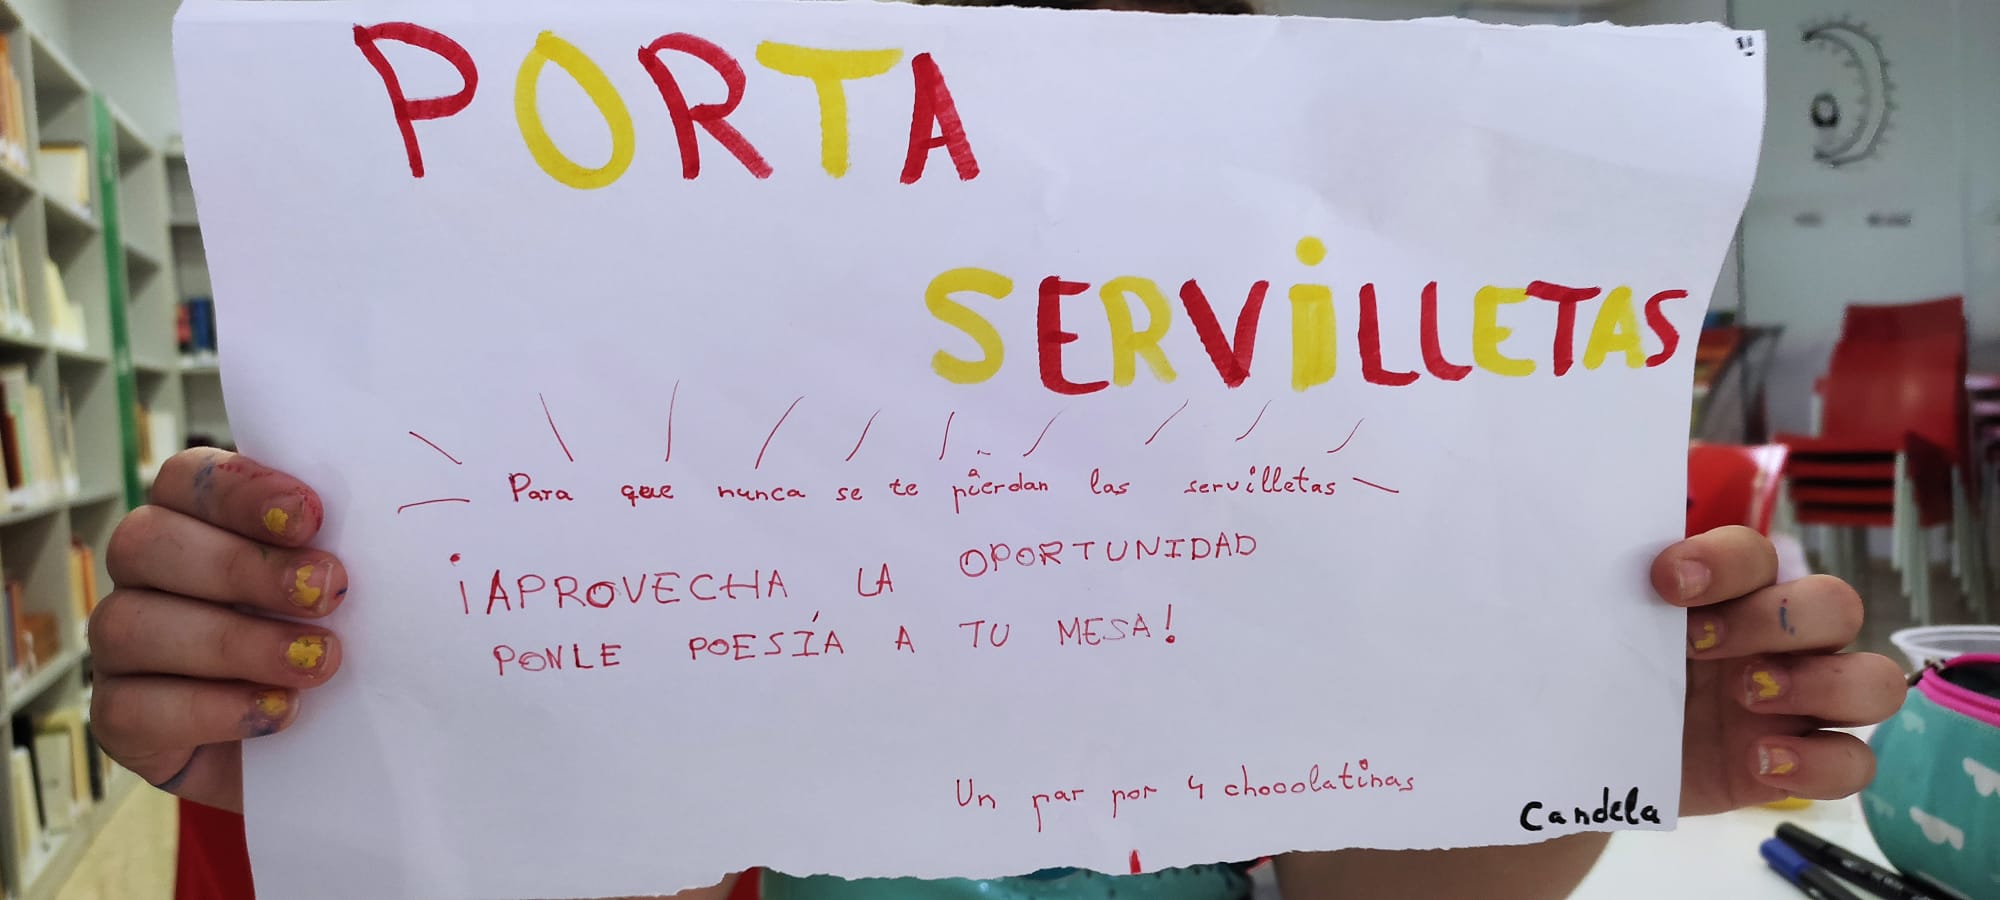 PORTA
SERVILLETAS
Para que nunca se te pierdan las servilletas
¡APROVECHA LA OPORTUNIDAD
PONLE POESÍA A TU MESA!
Un par por 4 chocolatinas
Candela